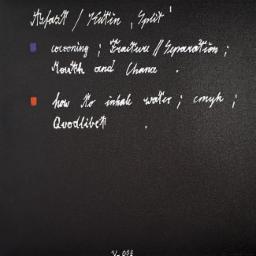 Artefact / Kittin , Split '
cocooning ; Fracture // Separation ;
Mouth and Chance .
how to inhale water ; cmyk ;
Quodlibet .